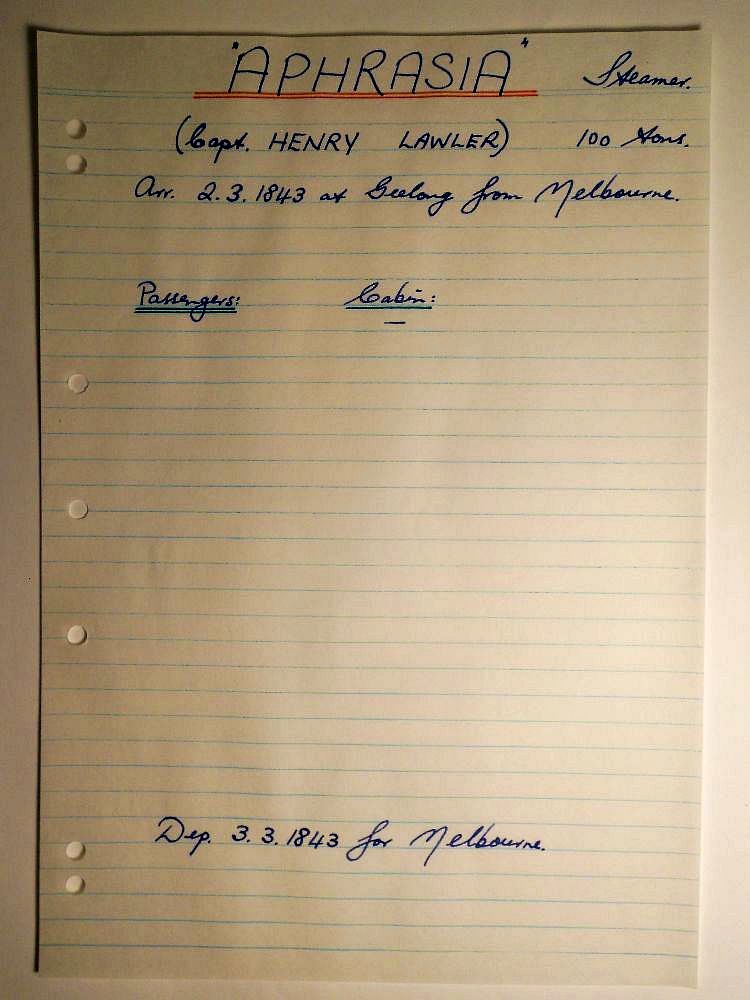 "APHRASIA" Steamer.
(Capt. HENRY LAWLER) 100 tons.
Arr. 2.3.1843 at Geelong from Melbourne.
Passengers: Cabin:
—
Dep. 3.3.1843 for Melbourne.